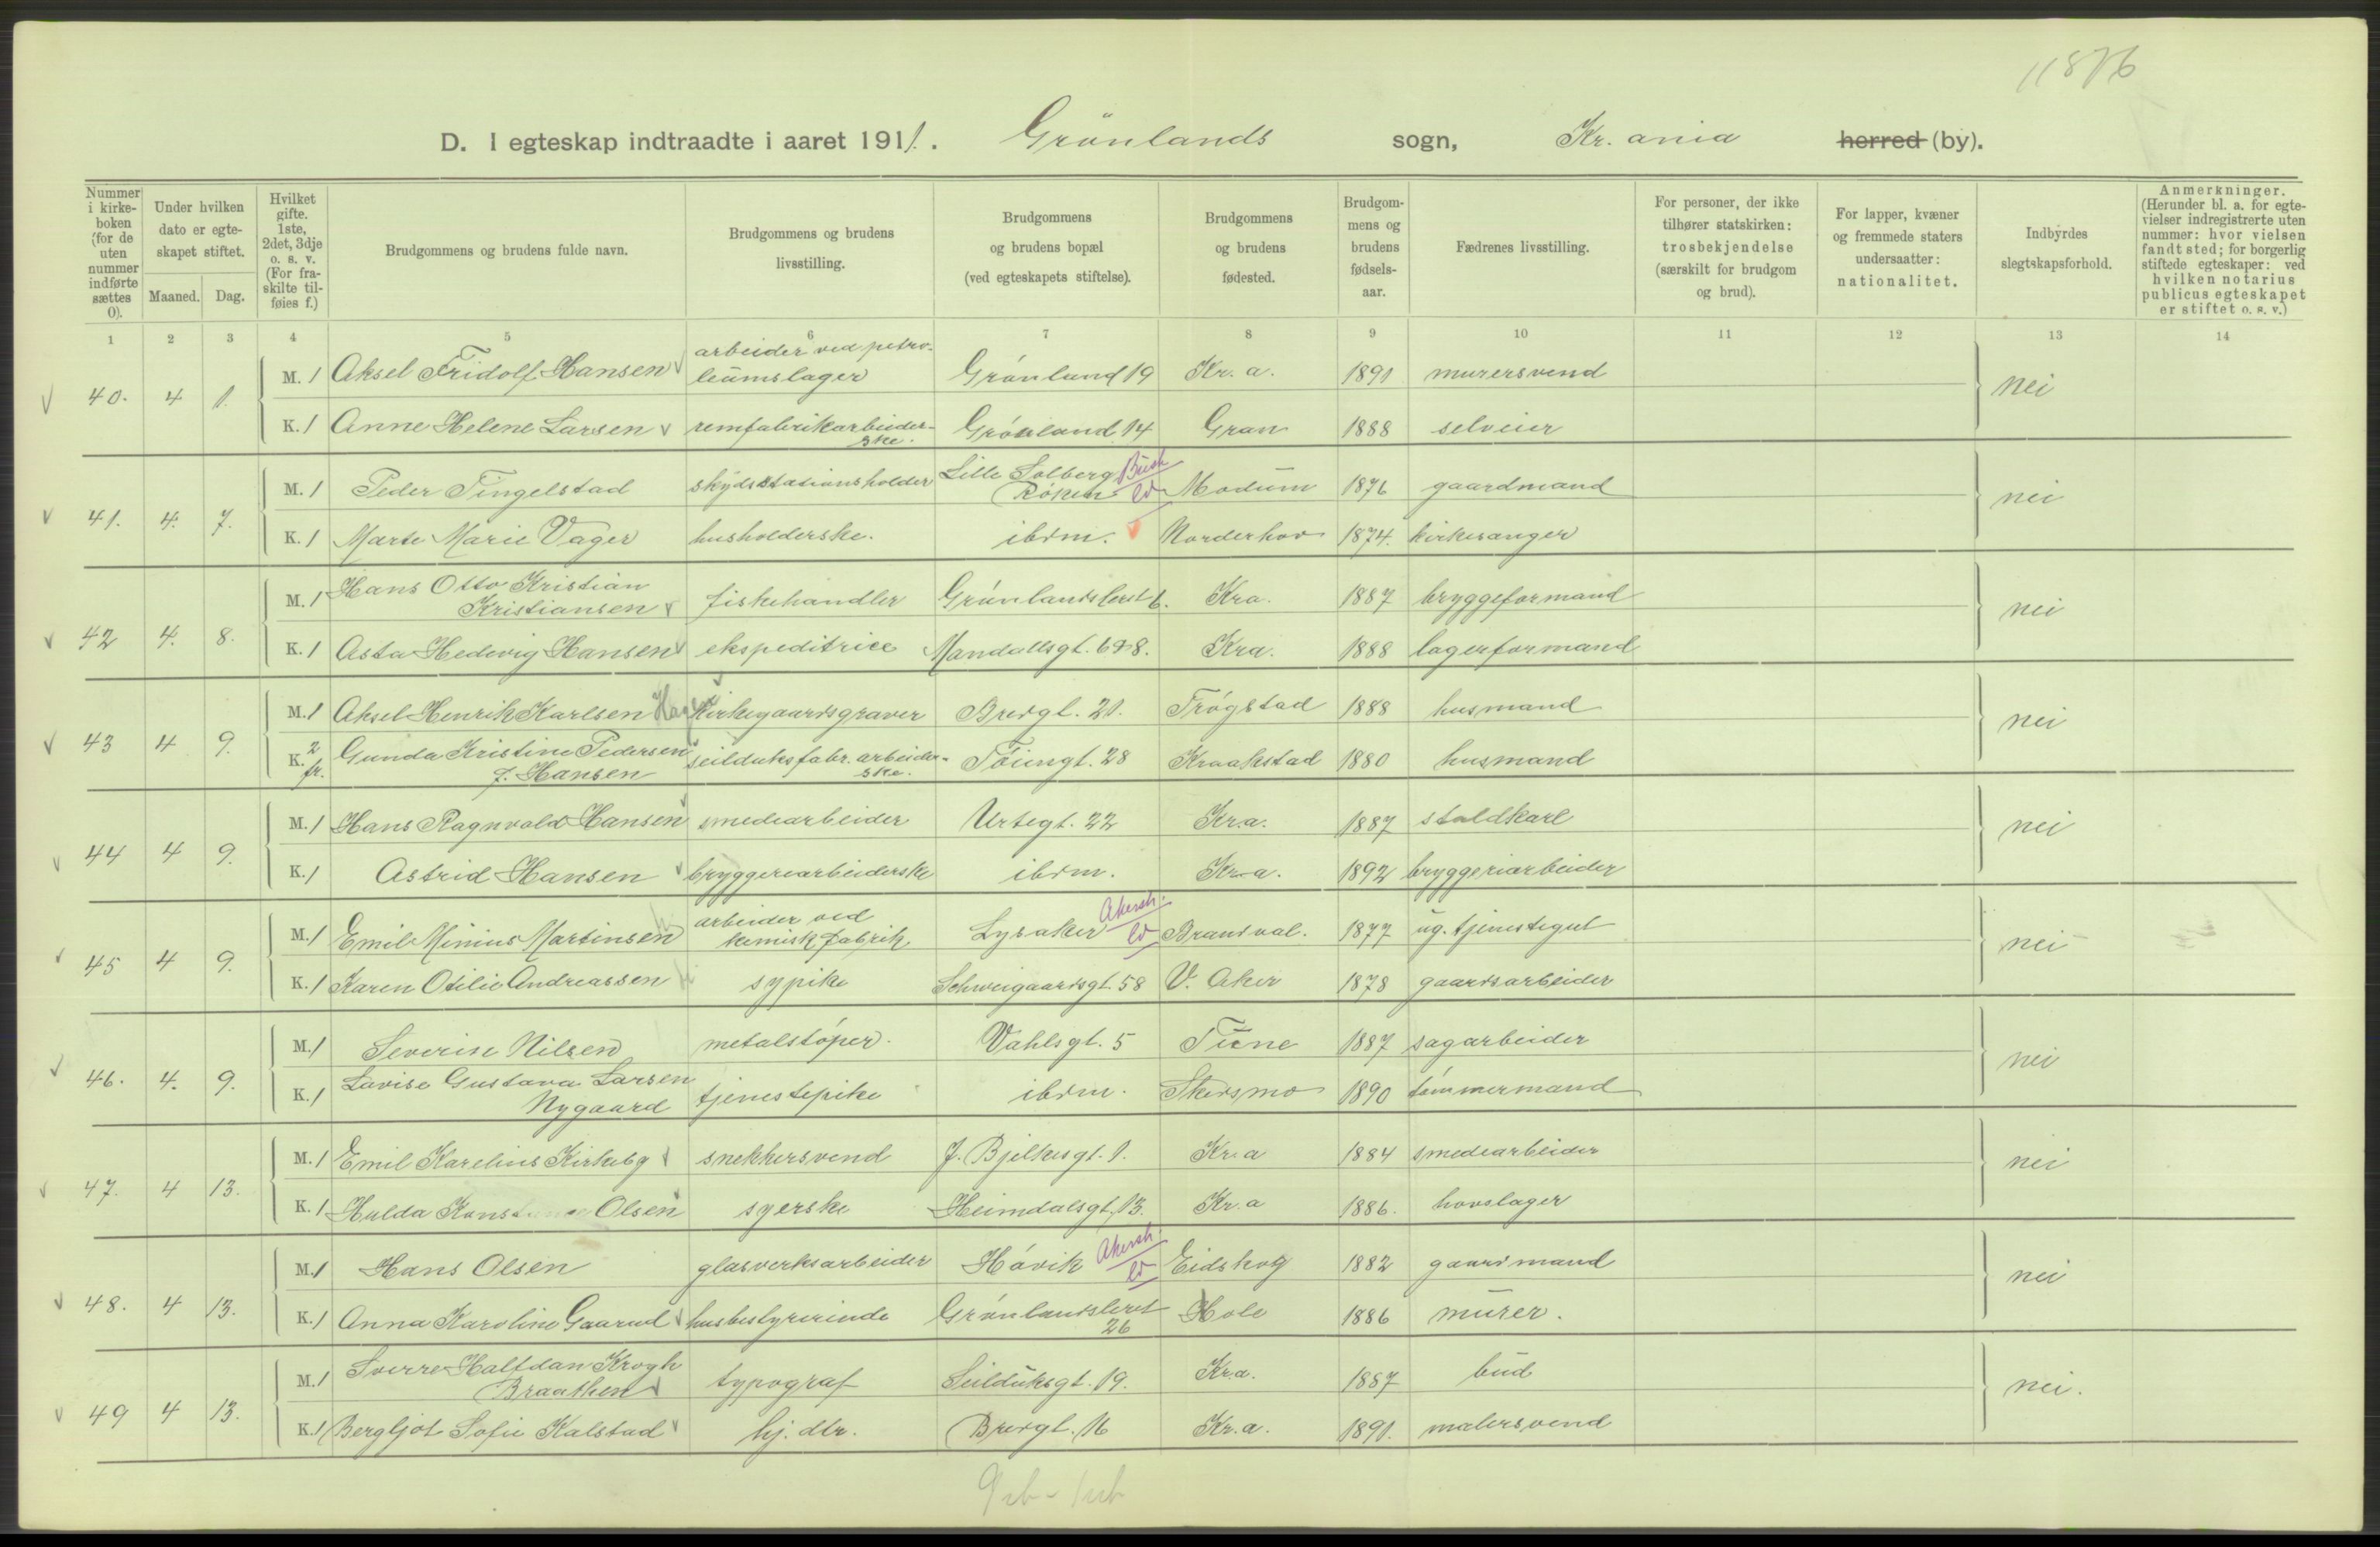 11876
D. I egteskap indtraadte i aaret 1911. Grønlands sogn, Kr. ania herred (by).
Nummer i kirke-boken (for de uten nummer indførte sættes 0).
Under hvilken dato er egte-skapet stiftet.
Maaned. Dag.
Hvilket gifte. 1ste, 2det, 3dje o. s. v. (For fra-skilte til-føies f.)
Brudgommens og brudens fulde navn.
Brudgommens og brudens livsstilling.
Brudgommens og brudens bopæl (ved egteskapets stiftelse).
Brudgommens og brudens fødested.
Brudgom-mens og brudens fødsels-aar.
Fædrenes livsstilling.
For personer, der ikke tilhører statskirken: trosbekjendelse (særskilt for brudgom og brud).
For lapper, kvæner og fremmede staters undersaatter: nationalitet.
Indbyrdes slegtskapsforhold.
Anmerkninger. (Herunder bl. a. for egte-vielser indregistrerte uten nummer: hvor vielsen fandt sted; for borgerlig stiftede egteskaper: ved hvilken notarius publicus egteskapet er stiftet o. s. v.)
1 2 3 4 5 6 7 8 9 10 11 12 13 14
40. 4 1. M. 1 Aksel Fridolf Hansen arbeider ved petro-leumslager Grønland 19 Kr. a. 1891 murersvend nei
K. 1 Anne Helene Larsen remfabrikarbeider-ske. Grønland 14 Gran 1888 selveier
41. 4. 7. M. 1 Peder Tingelstad skydsstationsholder Lille Solberg Røken Busk Modum 1876 gaardmand nei
K. 1 Marte Marie Vager husholderske. ibdm. Norderhov 1874. kirkesanger
42 4. 8. M. 1 Hans Otto Kristian Kristiansen fiskehandler Grønlandsleret 6. Kra. 1887 bryggeformand nei
K. 1 Asta Hedevig Hansen ekspeditrice Mandallsgt. 6 & 8. Kra. 1888 lagerformand
43 4 9. M. 1 Aksel Henrik Karlsen Hagen kirkegaardsgraver Bredgt. 21. Trøgstad 1888 husmand nei
K. 2 fr. Gunda Kristine Pedersen f. Hansen seilduksfabr. arbeider-ske. Tøiengt. 28 Kraakstad 1880 husmand
44 4 9. M. 1 Hans Ragnvald Hansen smedearbeider Urtegt. 22 Kr.a. 1887 staldkarl nei
K. 1 Astrid Hansen bryggeriarbeiderske ibdm. Kr.a. 1892 bryggeriarbeider
45 4 9. M. 1 Emil Minius Martinsen arbeider ved kemisk fabrik Lysaker Akersh. Brandval. 1877 ug. tjenestegut nei
K. 1 Karen Otilie Andreassen sypike Schweigaardsgt. 58 V. Aker 1878 gaardsarbeider
46. 4. 9. M. 1 Severin Nilsen metalstøper. Vahlsgt. 5 Tune 1887 sagarbeider nei
K. 1 Lovise Gustava Larsen Nygaard tjenestepike ibdm. Skedsmo 1890 tømmermand
47. 4 13. M. 1 Emil Karelius Kirkeby snekkersvend J. Bjelkesgt. 1. Kr. a 1884 smedearbeider nei
K. 1 Hulda Olsen syerske Heimdalsgt. 13. Kr. a 1886. hovslager
48. 4 13. M. 1 Hans Olsen glasverksarbeider Høvik Akersh. Eidskog 1882 gaardmand nei
K. 1 Anna Karoline Gaarud husbestyrerinde Grønlandsleret 26 Hole 1886 murer.
49 4 13. M. 1 Sverre Halfdan Krogh Braathen typograf Seilduksgt. 19. Kr.a. 1887 bud nei.
K. 1 Bergljot Sofie Kalstad hj. dtr. Bredgt. 16 Kr. a. 1891. malersvend